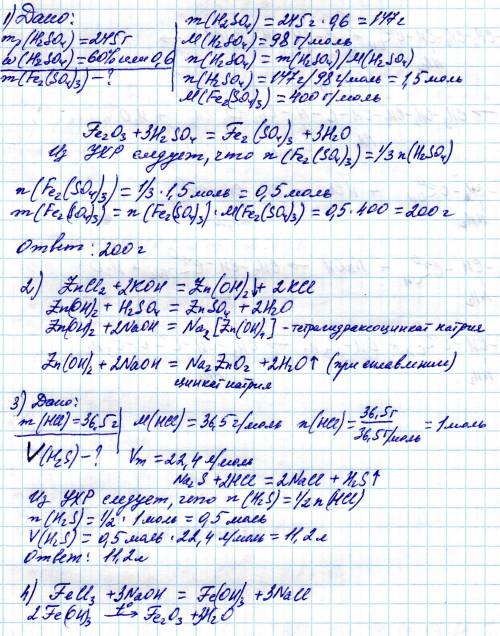 1) Дано:
m₁(H₂SO₄)=245г
ω(H₂SO₄)=60% или 0,6
m(Fe₂(SO₄)₃)-?
m(H₂SO₄)=245г·0,6=147г
M(H₂SO₄)=98 г/моль
n(H₂SO₄)=m(H₂SO₄)/M(H₂SO₄)
n(H₂SO₄)=147г/98г/моль=1,5моль
M(Fe₂(SO₄)₃)=400г/моль
Fe₂O₃+3H₂SO₄=Fe₂(SO₄)₃+3H₂O
Из УХР следует, что n(Fe₂(SO₄)₃)=1/3 n(H₂SO₄)
n(Fe₂(SO₄)₃)=1/3·1,5моль=0,5моль
m(Fe₂(SO₄)₃)=n(Fe₂(SO₄)₃)·M(Fe₂(SO₄)₃)=0,5·400=200г
Ответ: 200г
2) ZnCl₂+2KOH=Zn(OH)₂↓+2KCl
Zn(OH)₂+H₂SO₄=ZnSO₄+2H₂O
Zn(OH)₂+2NaOH=Na₂[Zn(OH)₄]-тетрагидроксоцинкат натрия
Zn(OH)₂+2NaOH=Na₂ZnO₂+2H₂O↑ (при сплавлении)
цинкат натрия
3) Дано:
m(HCl)=36,5г
V(H₂S)-?
M(HCl)=36,5г/моль n(HCl)=36,5г/36,5г/моль=1моль
Vm=22,4 л/моль
Na₂S+2HCl=2NaCl+H₂S↑
Из УХР следует, что n(H₂S)=1/2 n(HCl)
n(H₂S)=1/2·1моль=0,5моль
V(H₂S)=0,5моль·22,4 л/моль=11,2л
Ответ: 11,2л
4) FeCl₃+3NaOH=Fe(OH)₃+3NaCl
2Fe(OH)₃ –t°→ Fe₂O₃+3H₂O